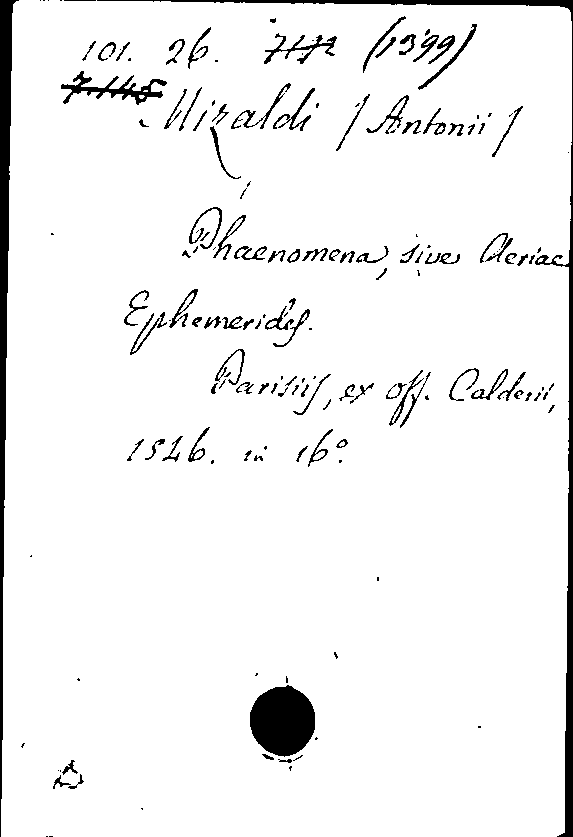 101. 26. (1399)
7.145
Mizaldi / Antonii /
Phaenomena, sive Aeriae
Ephemerides.
Parisiis, ex off. Calderii,
1546. in 16°.